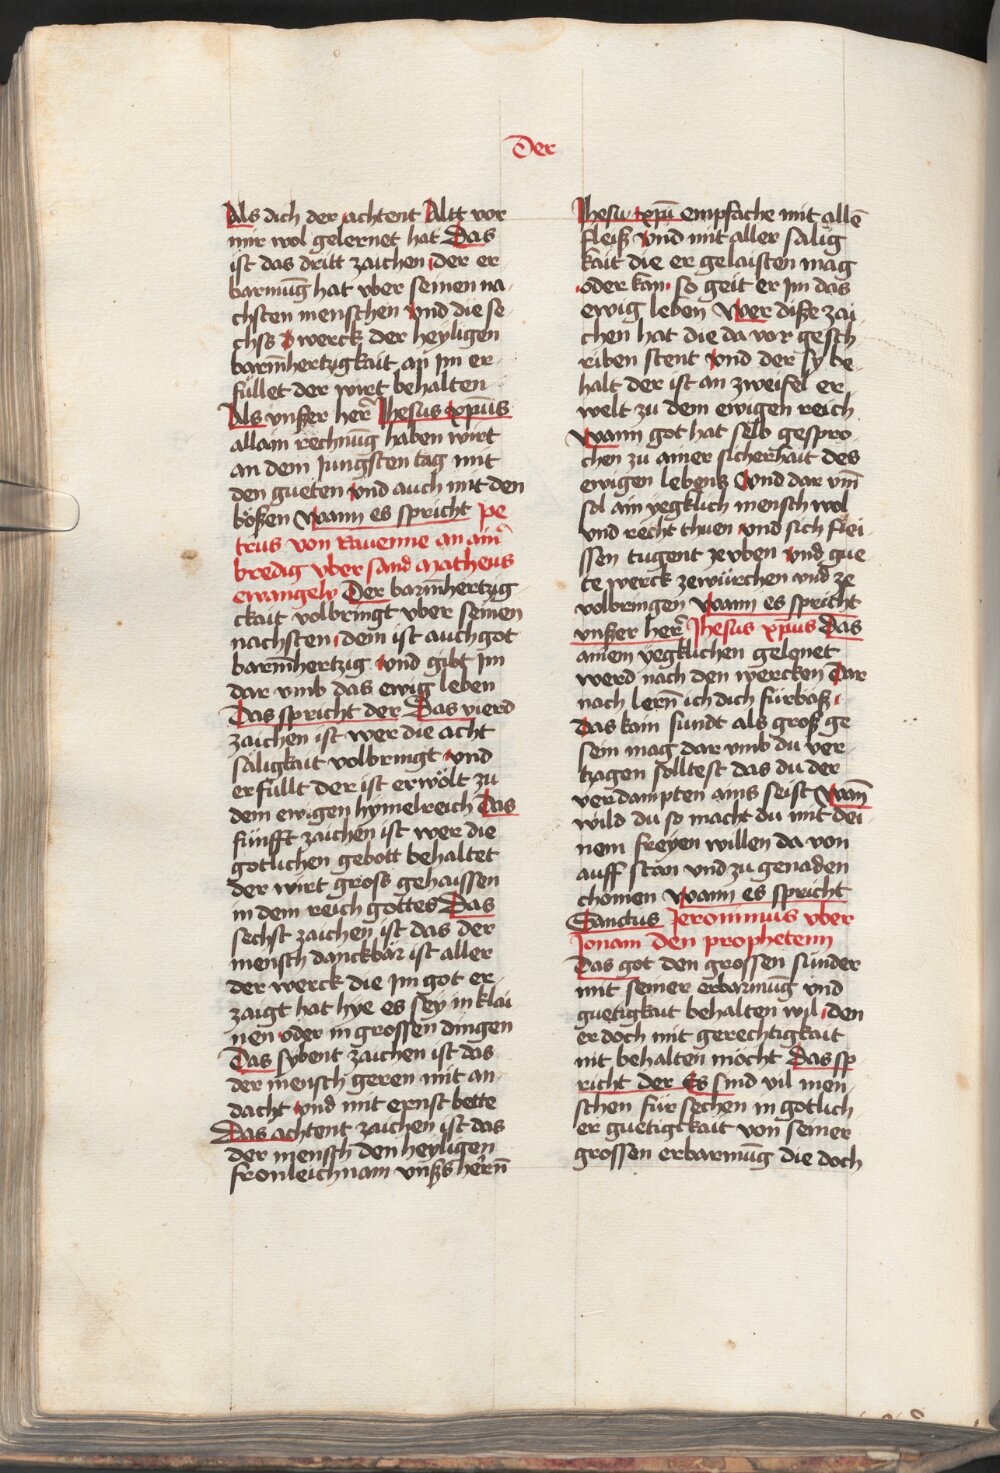 Der
Als dich der achtent Altt vor
mir wol gelernet hat Das
ist das dritt zaichen der er
barmūg hat vber seinen na-
chsten menschen vnd die se-
chss werck der heyligen
barm̄hertzigkait an jm er-
füllet der wirt behalten
Als vnßer her̄ Jhesus xp̄us
allain rechnūg haben wirt
an dem jungsten tag mit
den gueten vnd auch mit den
bößen wann es spricht pe
trus von Rauenne an ainr̄
bredig vber sand Matheus
ewangely Der barm̄hertzig
ckait volbringt vber seinen
nachsten dem ist auch got
barm̄hertzig vnd gibt jm
dar vmb das ewig leben
Das spricht der Das vierd
zaichen ist wer die acht
säligkait volbringt vnd
erfüllt der ist erwölt zu
dem ewigen hymelreich Das
fünfft zaichen ist wer die
gotlichen gebott behaltet
der wirt gross gehaissen
in dem reich gottes Das
sechst zaichen ist das der
mensch danckbär ist aller
der werck die jm got er
zaigt hat hye es sey in klai
nen oder in grossen dingen
Das sybent zaichen ist das
der mensch geren mit an-
dacht vnd mit ernst bette
Das achtent zaichen ist das
der mensch den heyligen
fronleichnam vnßs her̄n
Jhesu xp̄i empfache mit allē
fleiß vnd mit aller sälig
kait die er gelaisten mag
oder kan so geit er jm das
ewig leben Wer diße zai
chen hat die da vor gesch
riben stent vnd der sy be-
halt der ist an zweifel er
welt zu dem ewigen reich
Wann got hat selb gespro
chen zu ainer sicherhait des
ewigen lebens Vnd dar vm̄
sol ain yegklich mensch wol
vnd recht thuen vnd sich flei-
ssen tugent ze vben vnd gue-
te werck ze würchen vnd ze
volbringen wann es spricht
vnßer her̄ Jhesus xp̄us Das
ainem yegklichen gelonet
werd nach den wercken Dar
nach lern̄ ich dich fürbaß
Das kain sundt als groß ge
sein mag dar vmb du ver-
tzagen solltest das du der
verdampten ains seist Wan̄
wild du so macht du mit dei-
nem freyen willen da von
auff stan vnd zu genaden
chomen wann es spricht
Sanctus Jeronimus vber
Jonam den prophetenn
Das got den grossen sünder
mit seiner erbarmūg vnd
guetigkait behalten wil den
er doch mit gerechtigkait
nit behalten möcht Das sp
richt der Es sind vil men-
schen für sechen in gotlich
er guetigckait von seiner
grossen erbarmūg die doch